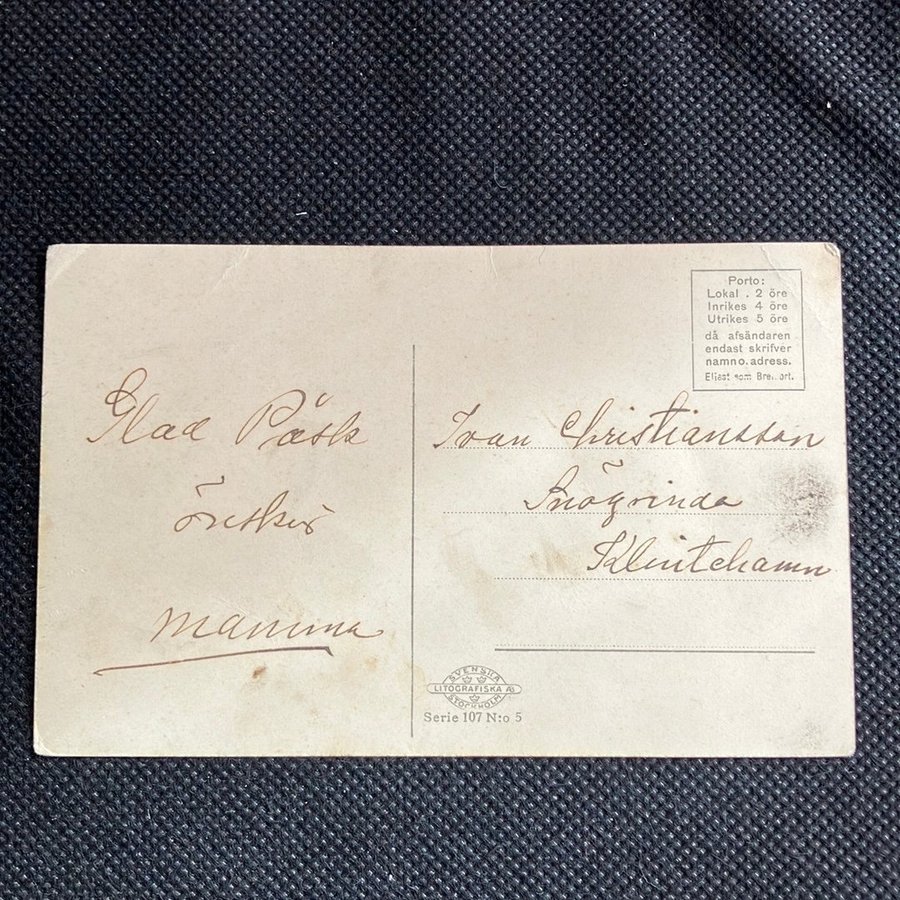 Glad Påsk
önskar
Mamma
Porto:
Lokal . 2 öre
Inrikes 4 öre
Utrikes 5 öre
då afsändaren
endast skrifver
namn o. adress.
Eljest som Brefkort.
Ivan Christiansson
Snögrinda
Klintehamn
SVENSKA
LITOGRAFISKA AB
STOCKHOLM
Serie 107 N:o 5